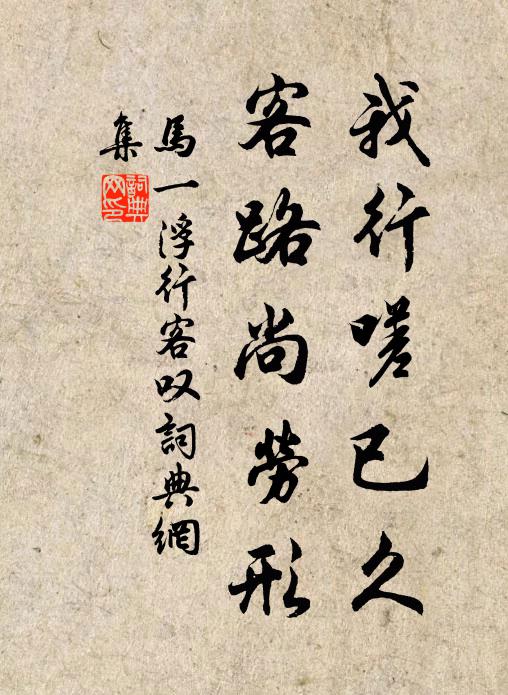 我行嗟已久
客路尚勞形
馬一浮行客叹詞典網
集
詞典
网印